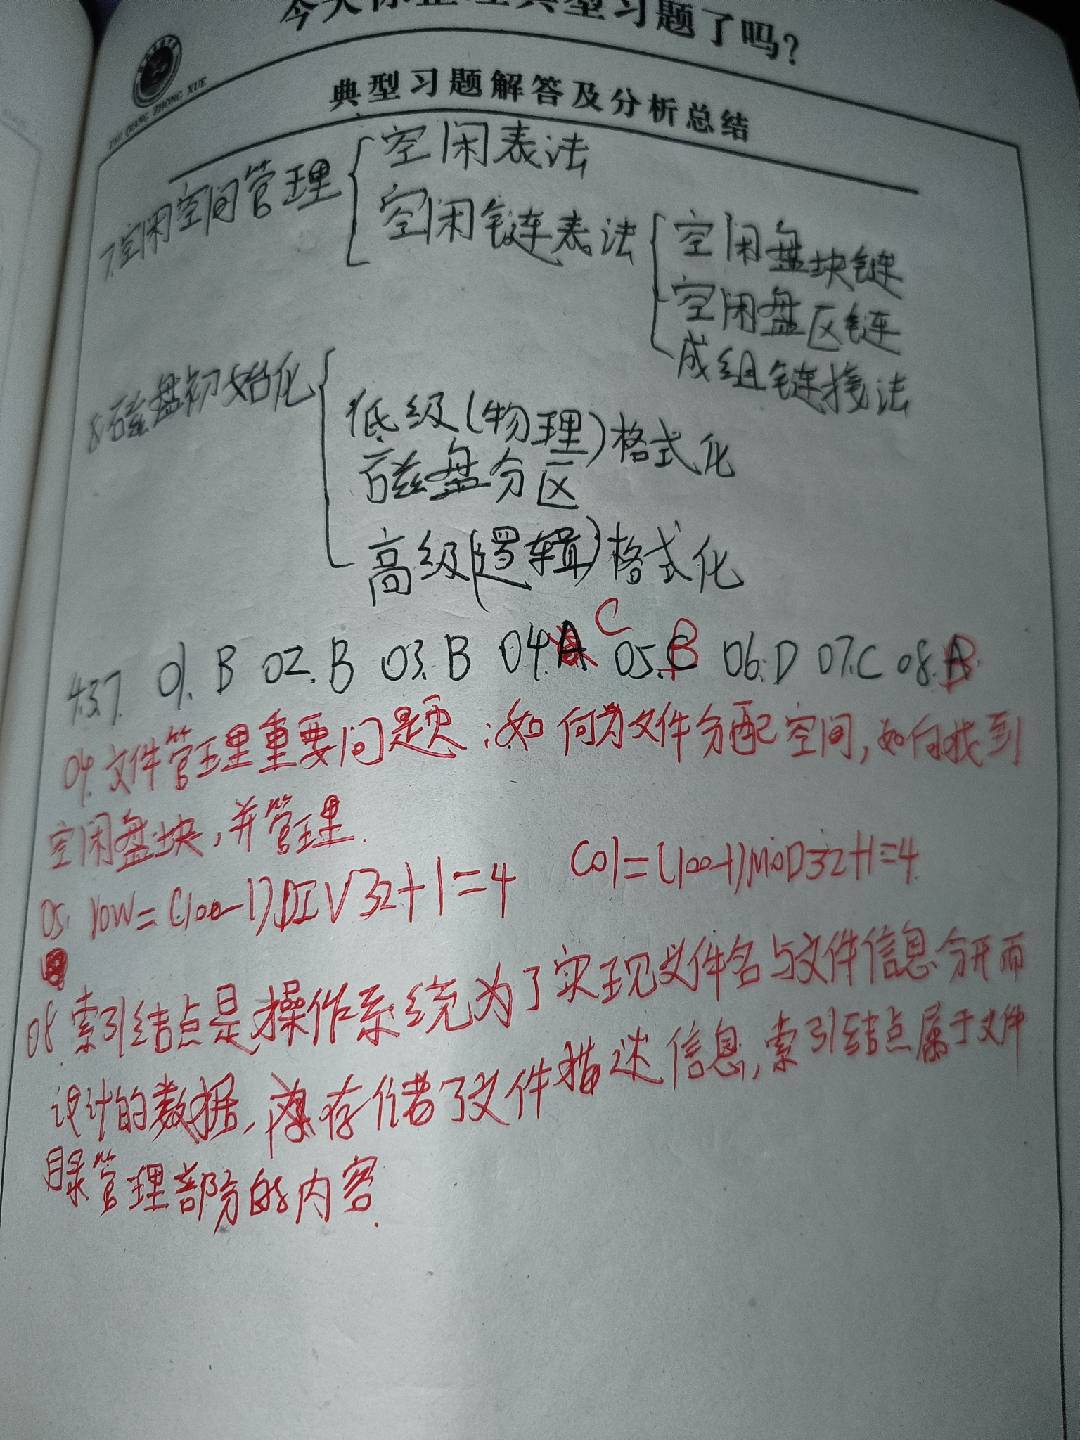 今天你整理典型习题了吗?
典型习题解答及分析总结
7.空闲空间管理 空闲表法
空闲链表法 空闲盘块链
空闲盘区链
成组链接法
8.磁盘初始化 低级(物理)格式化
磁盘分区
高级(逻辑)格式化
4.3.7. 01. B 02. B 03. B 04. A C 05. C B 06. D 07. C 08. A B.
04. 文件管理重要问题:如何为文件分配空间,如何找到
空闲盘块,并管理.
05. row=(100-1)DIV32+1=4 col=(100-1)MOD32+1=4.
08. 索引结点是操作系统为了实现文件名与文件信息分开而
设计的数据,存储了文件描述信息,索引结点属于文件
目录管理部分的内容.